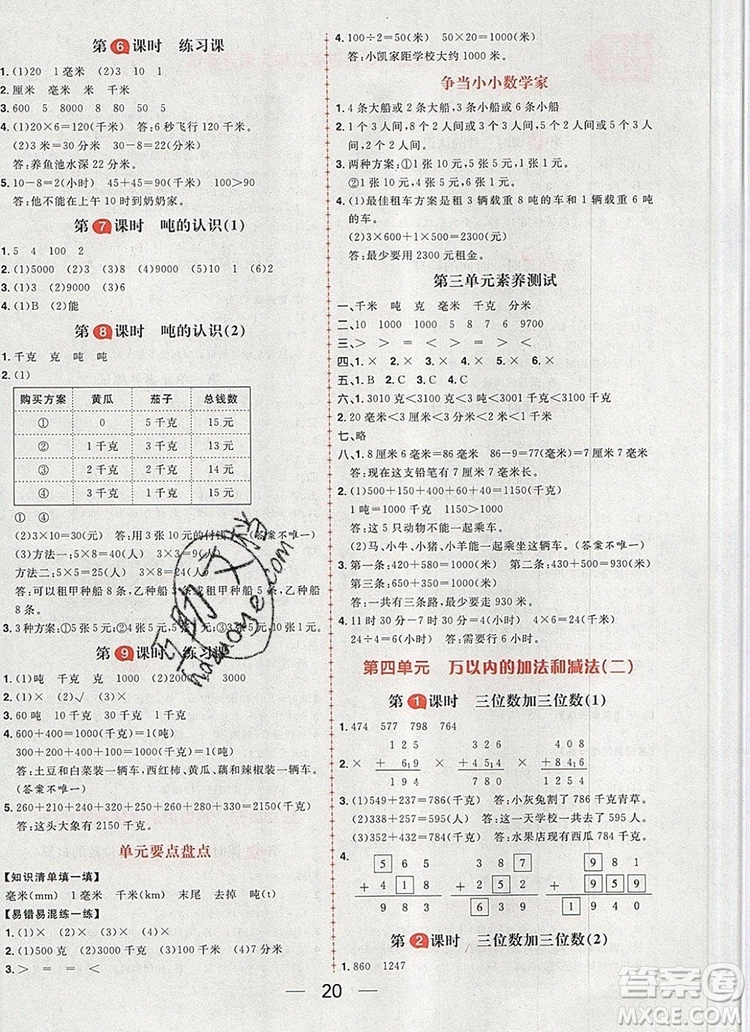 第6课时 练习课
1.(1)20 1毫米 (2)3 10 1
2.厘米 毫米 米 千米
3.600 5 8000 8 60 7
4.(1)20×6=120(千米) 答:6秒飞行120千米。
(2)3米=30分米 30-8=22(分米)
答:养鱼池水深22分米。
5.10-8=2(小时) 45+45=90(千米) 100>90
答:他不能在上午10时到奶奶家。
第7课时 吨的认识(1)
1.5 4 100 2
2.(1)5000 (2)3 (3)8 (4)9000
3.(1)× (2)√ (3)× (4)√ (5)× (6)√
4.(1)B (2)能
第8课时 吨的认识(2)
1.千克 克 吨 吨
2.(1)
购买方案 黄瓜 茄子 总钱数
① 0 5千克 15元
② 1千克 4千克 14元
③ 2千克 3千克 13元
④ 3千克 2千克 12元
(答案不唯一)
(2)3×10=30(元) 答:用3张10元的付钱。(答案不唯一)
(3)方法一:2×4=8(人) 3×3=9(人)
方法二:2×2=4(人) 3×8=24(人)
答:可以租甲种船8条,乙种船 条或租甲种船 条,乙种船8条。
3.3种方案:①5张5元;②1张10元,3张5元;③2张10元,1张5元。
第9课时 练习课
1.吨 千克 克 吨
2.(1)× (2)√ (3)× (4)×
3.> < < = < >
4.600+400=1000(千克)=1(吨)
300+200+100+400=1000(千克)=1(吨)
答:土豆和白菜装一辆车,西红柿、黄瓜、藕和辣椒装一辆车。
(答案不唯一)
5.260+210+240+290+310+320+520=2150(千克)
答:这头大象有2150千克重。
单元要点盘点
【知识清单填一填】
毫米(mm) 1毫米 千米(km) 末尾 去掉 吨(t)
【易错易混练一练】
1.(1)× (2)√ (3)× (4)×
2.(1)5000 (2)9 (3)6 (4)3000 (5)240 (6)4
3.> = = <
6.100÷2=50(米) 50×20=1000(米)
答:小凯家距学校大约1000米。
争当小小数学家
1.4条大船或2条大船,3条小船或6条小船
2.1个3人间,8个2人间或3个3人间,5个2人间或5个3人间,2个2人间
3.两种方案:①1张10元,1张5元,5张1元。②1张10元,2张5元。
4.(1)最佳租车方案是3辆载重8吨的车和1辆载重6吨的车
(2)3×600+500=2300(元)
答:最少要用2300元租金。
第三单元素养测试
一、千米 吨 克 毫米 千克 分米
二、10 1000 1000 5 8 9700
三、> < > < = <
四、1.× 2.× 3.√ 4.√ 5.×
五、1.B 2.C 3.B 4.C
六、1.3010克<3100克<3千克10克<3010千克
2.20毫米<3厘米<3分米<3米<3千米
七、略
八、1.8厘米6毫米=86毫米 86-9=77(毫米)
答:现在这支铅笔有77毫米长。
2.(1)500+150+40+60+400=1150(千克)
1吨=1000千克 1150>1000
答:这5只动物不能一起乘车。
(2)马、小牛、小猪、小羊能一起乘这辆车。(答案不唯一)
3.第一条:420+580=1000(米) 第二条:630+450=1080(米) 第三条:300+650+200=1150(米)
答:一共有三条路,最近的一条长1000米。
4.11时30分-11时=30分 30÷5=6(千米)
24÷4=6(分钟) 答:需要行6分钟。
第四单元 万以内的加法和减法(二)
第1课时 三位数加三位数(1)
1.474 577 798 764
2. 125 388 431
× +69 √ +610 × +436
194 998 867
3.(1)549+237=786(千克) 答:小灰兔割了786千克青草。
(2)451+332=783(人) 答:这一天学校一共来783人。
(3)352+434=786(千克) 答:水果店共有786千克水果。
4. 582 325 571
+401 +618 +245
983 943 816
第2课时 三位数加三位数(2)
1.860 1247
20
答案卷
MXQE.COM
互助文档
hdzuoye.com